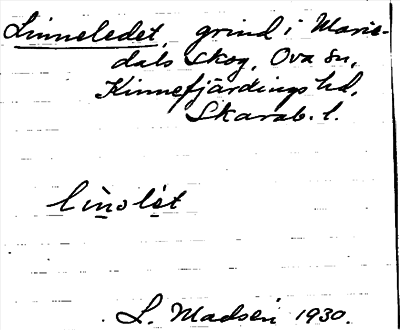 Linneledet, grind i Marie-
dals skog, Ova sn,
Kinnefjärdings hd,
Skarab. l.
linolet
L. Madsen 1930.